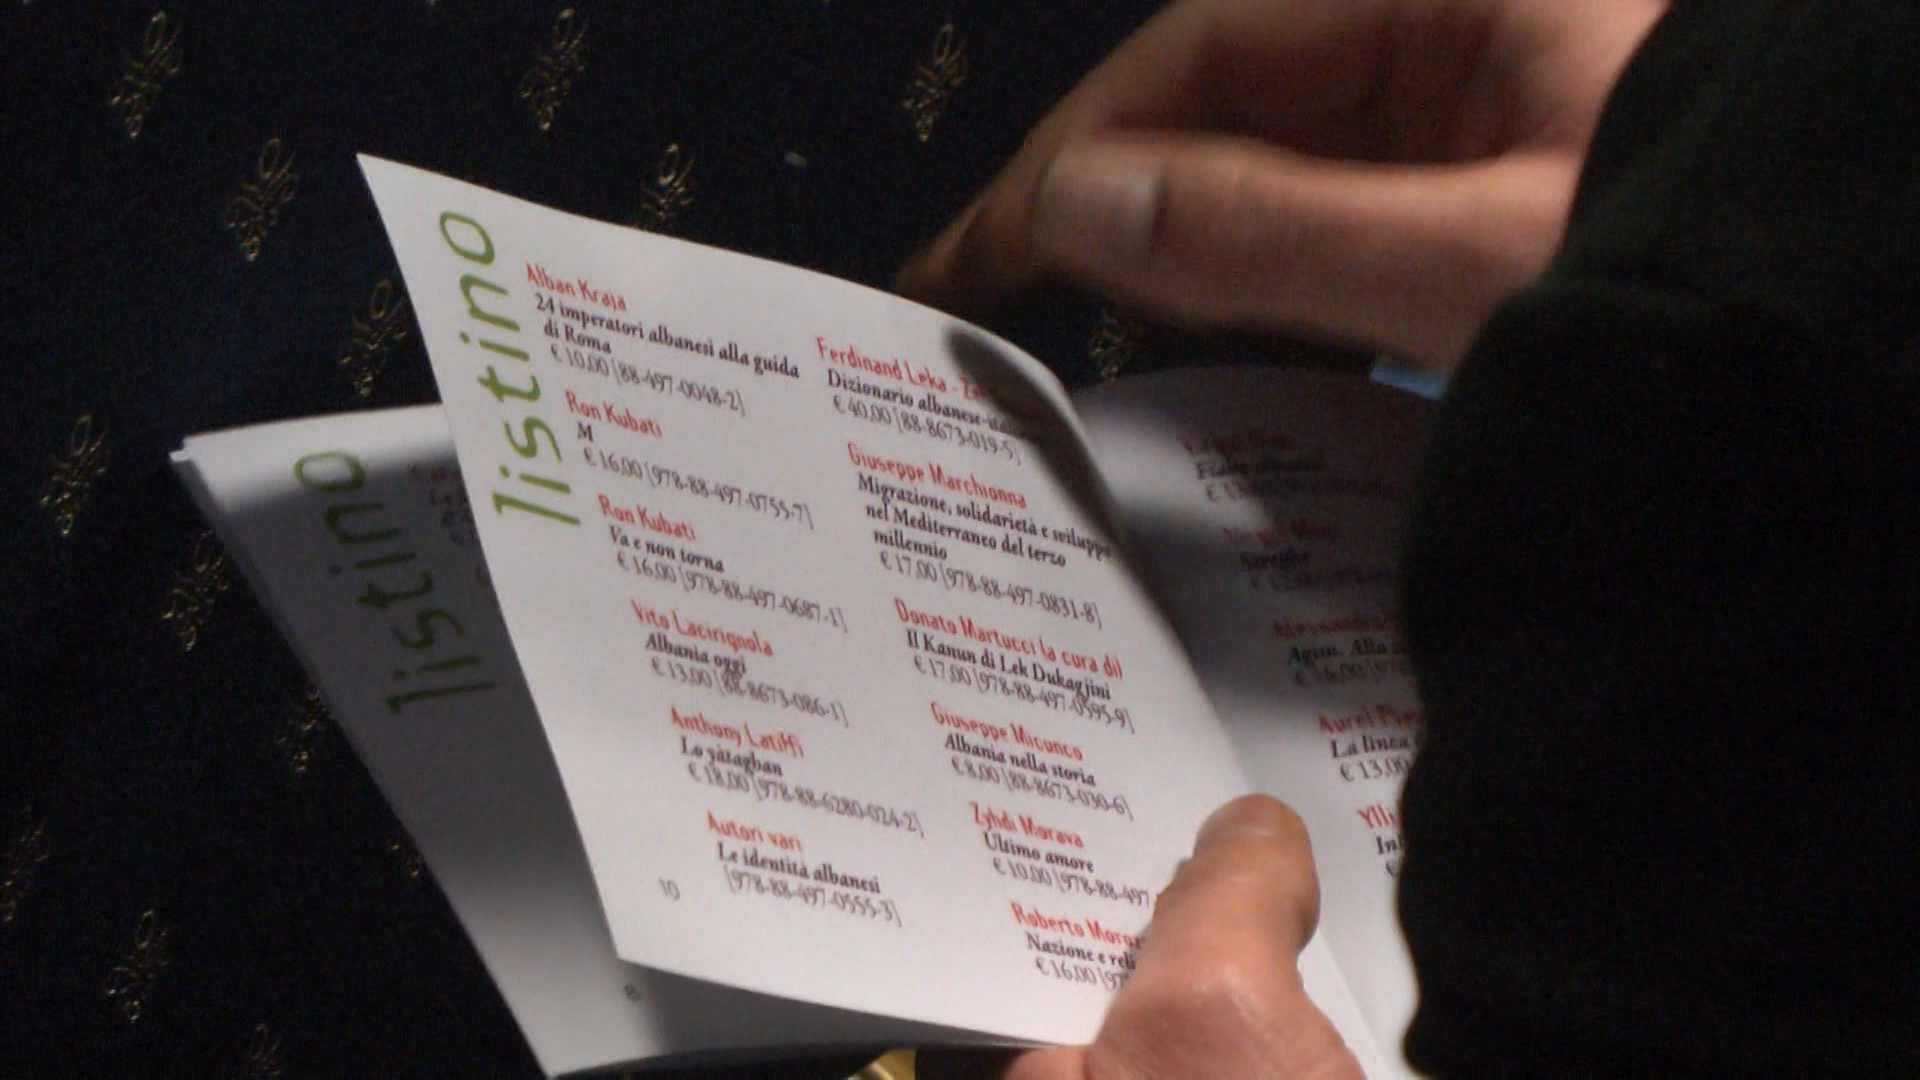 listino
Alban Kraja
24 imperatori albanesi alla guida
di Roma
€ 10,00 [88-497-0048-2]
Ron Kubati
M
€ 16,00 [978-88-497-0755-7]
Ron Kubati
Va e non torna
€ 16,00 [978-88-497-0687-1]
Vito Lacirignola
Albania oggi
€ 13,00 [88-8673-086-1]
Anthony Latiffi
Lo yataghan
€ 18,00 [978-88-6280-024-2]
Autori vari
Le identità albanesi
[978-88-497-0555-3]
10
Ferdinand Leka -
Dizionario albanese-
€ 40,00 [88-8673-019-5]
Giuseppe Marchionna
Migrazione, solidarietà e sviluppo
nel Mediterraneo del terzo
millennio
€ 17,00 [978-88-497-0831-8]
Donato Martucci (a cura di)
Il Kanun di Lek Dukagjini
€ 17,00 [978-88-497-0595-9]
Giuseppe Micunco
Albania nella storia
€ 8,00 [88-8673-030-6]
Zyhdi Morava
Ultimo amore
€ 10,00 [978-88-497-
Roberto
Nazione e
€ 16,00 [97
listino
8
Alessandro
Agim. Alla
€ 16,00
Aurel
La linea
€ 13,00